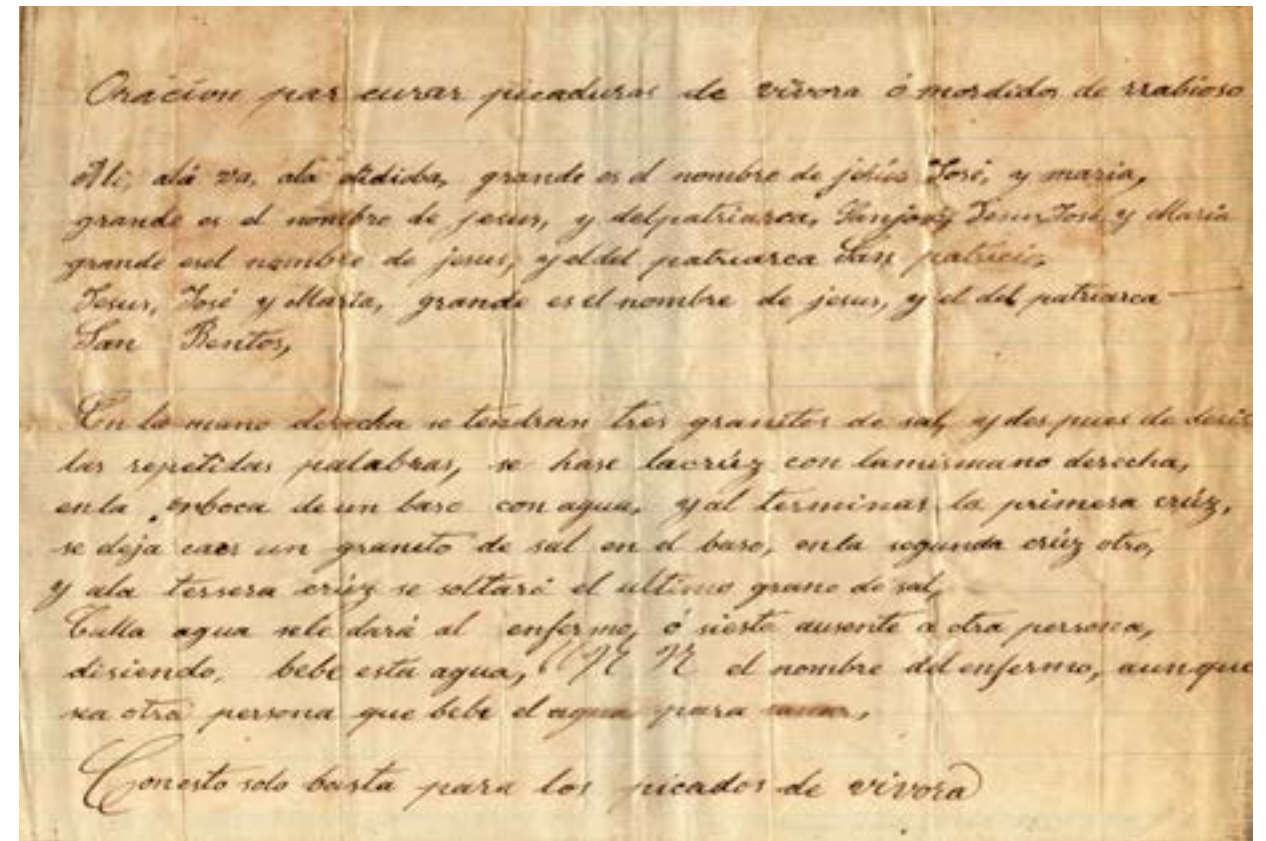 Oracion par curar picaduras de vivora ó mordidos de rrabioso
Ali, alá va, alá didida, grande es el nombre de jesús José, y maria,
grande es el nombre de jesus, y delpatriarca, Sanjosé, Jesus, José, y Maria
grande esel nombre de jesus, yeldel patriarca San patricio,
Jesus, José y Maria, grande es el nombre de jesus, y el del patriarca
San Bentos,
En la mano derecha se tendran tres granitos de sal, y des pues de desir
las repetidas palabras, se hase lacrúz con lamismano derecha,
enla enboca deun baso con agua, yal terminar la primera crúz,
se deja caer un granito de sal en el baso, enla segunda crúz otro,
y ala tersera crúz se soltará el ultimo grano de sal,
agua sele dará al enfermo, ó siestá ausente a otra persona,
disiendo, bebe esta agua, N N el nombre del enfermo, aunque
sea otra persona que bebe el agua para
Conesto solo basta para los picados de vivora